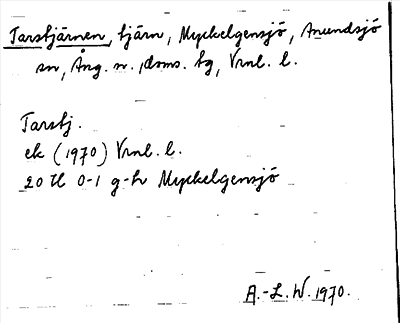 Tarstjärnen, tjärn, Myckelgensjö, Anundsjö
sn, Ång. n. doms. tg, Vrnl. l.
Tarstj.
ek (1970) Vrnl. l.
20 H 0-1 g-h Myckelgensjö
A.-L. W. 1970.